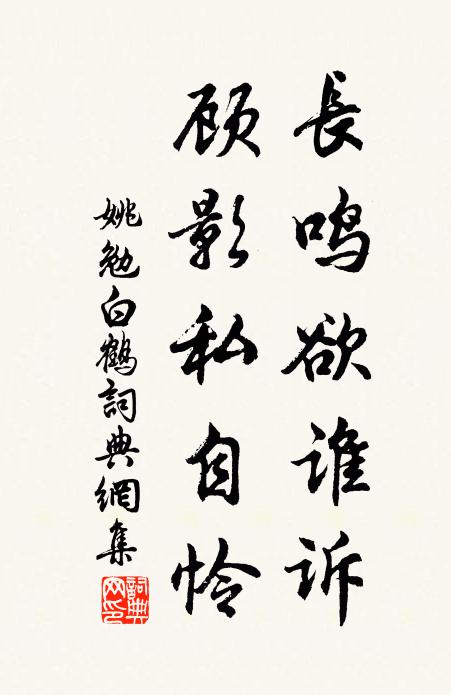 長鸣欲谁诉
顾影私自怜
姚勉白鶴詞典網集
詞典网印